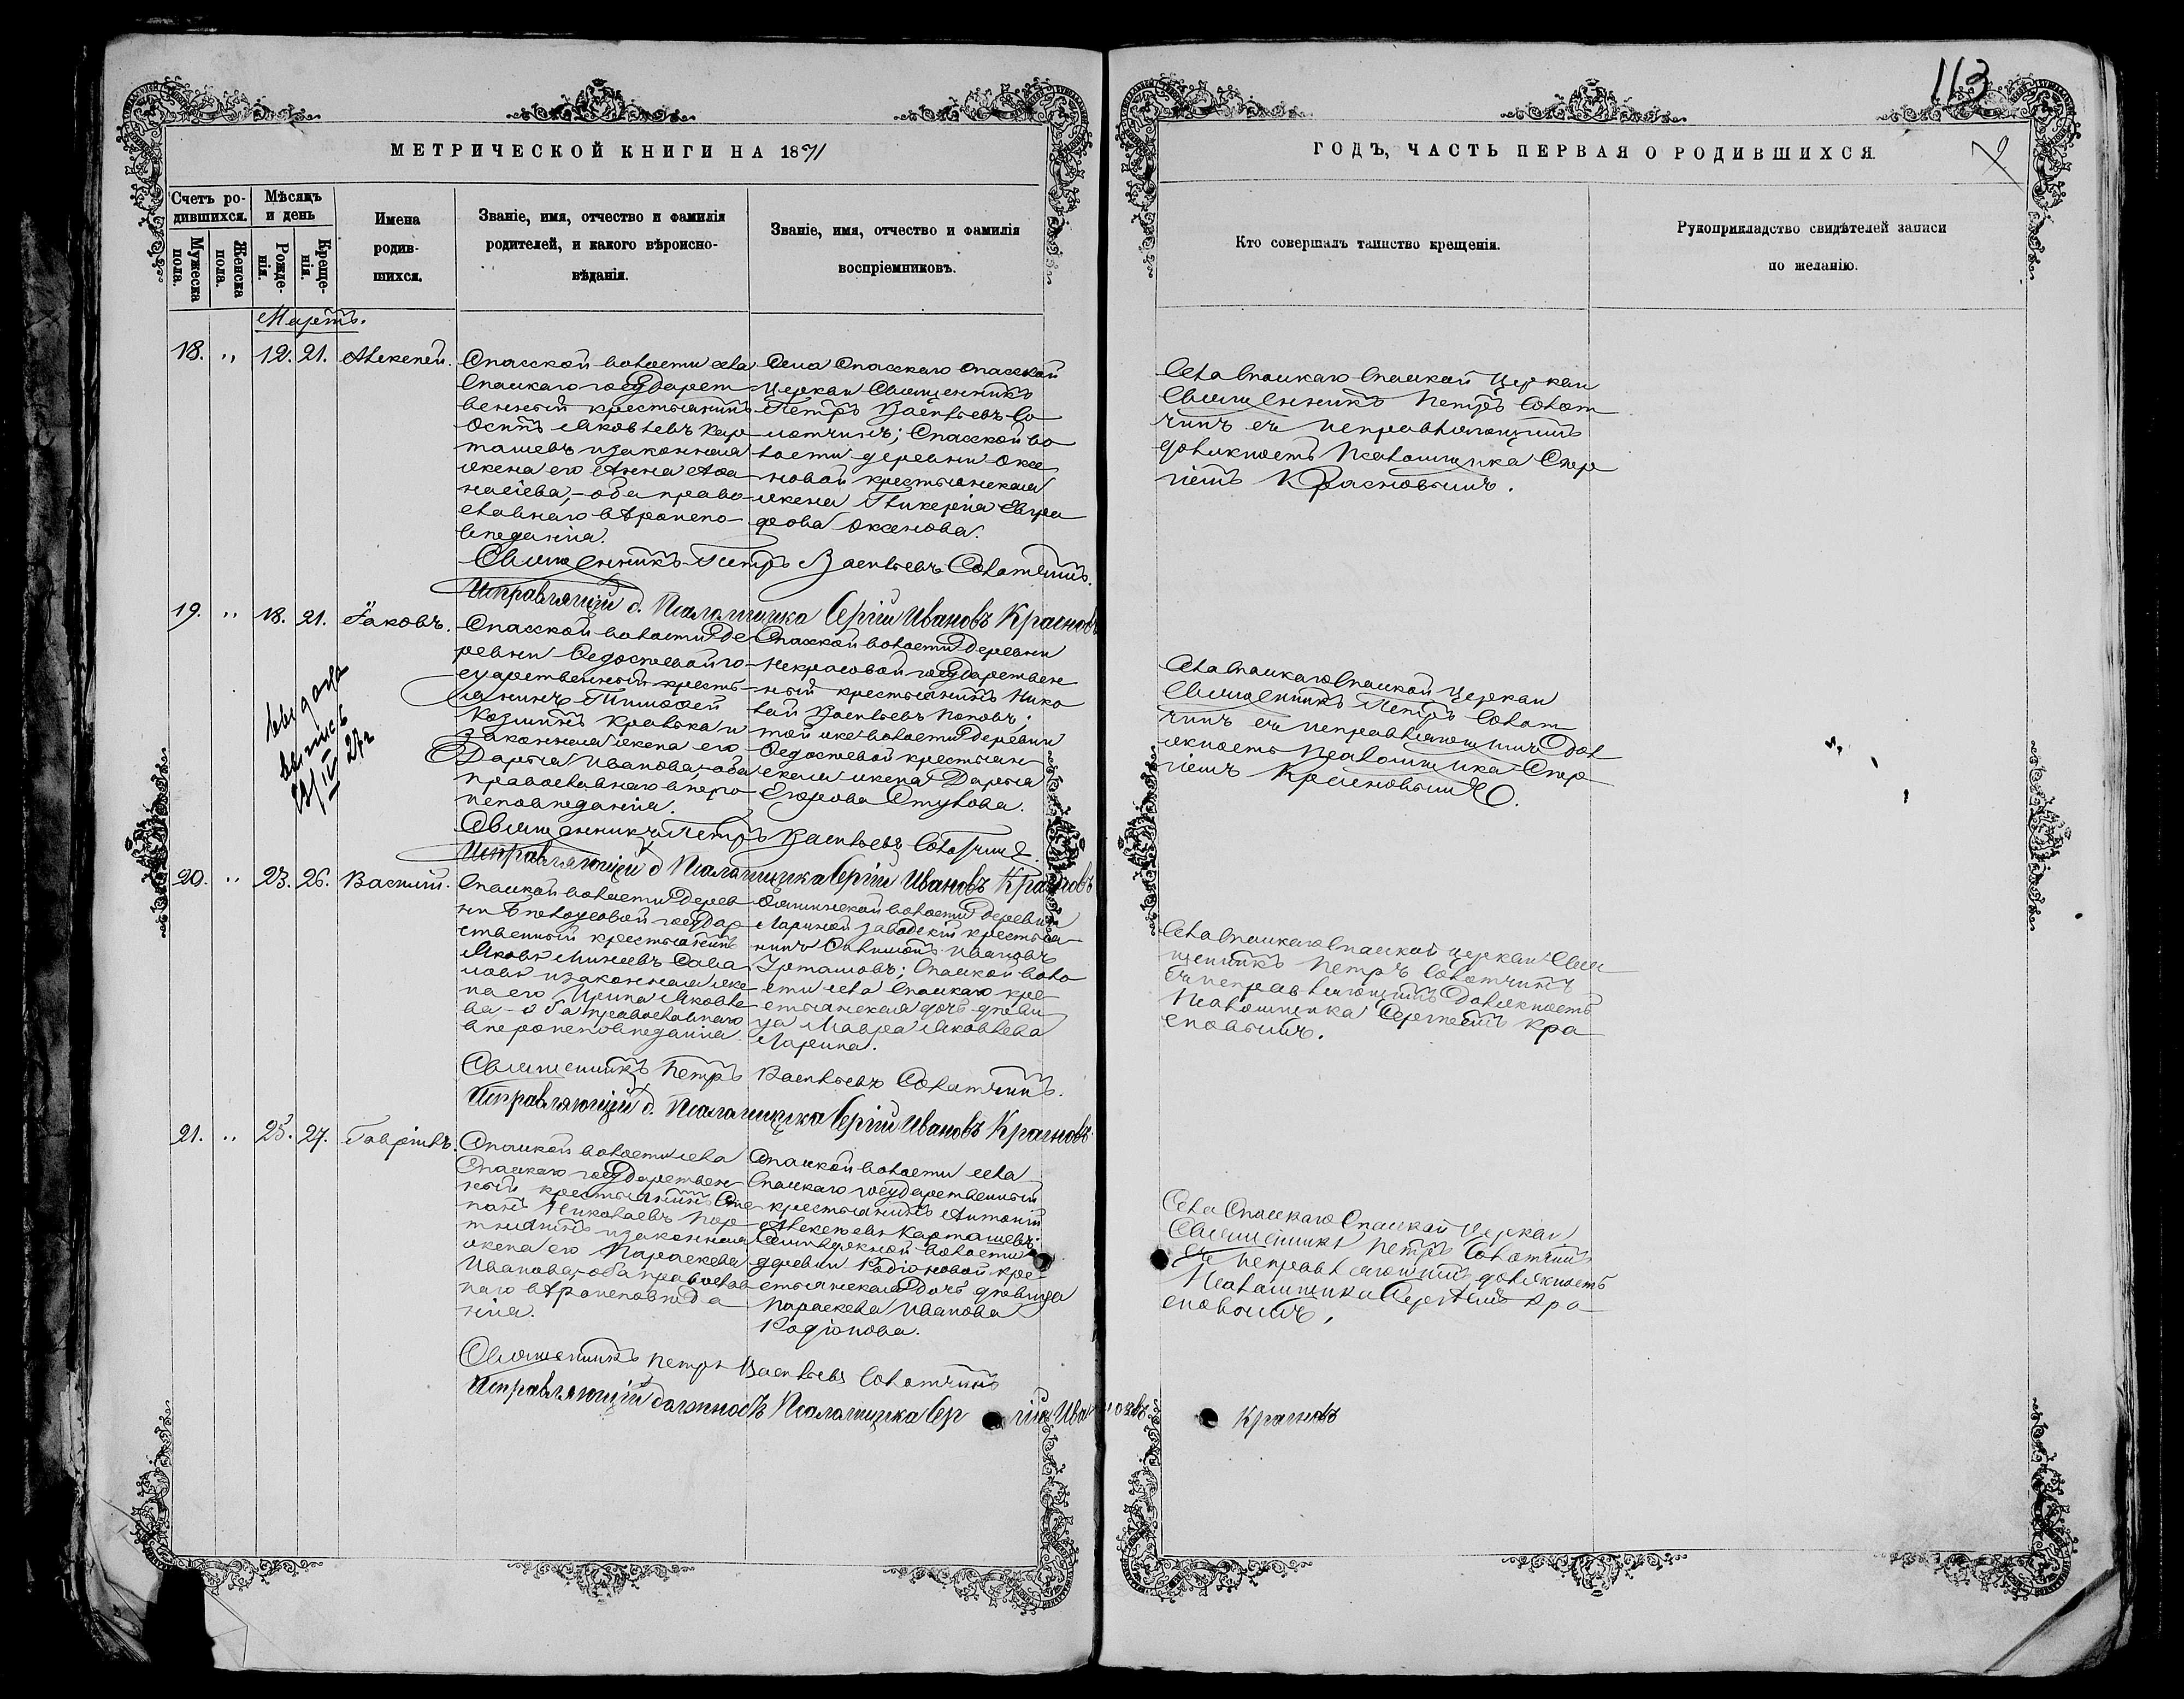 113
МЕТРИЧЕСКОЙ КНИГИ НА 1871
ГОДЪ, ЧАСТЬ ПЕРВАЯ О РОДИВШИХСЯ.
Счетъ родившихся.
Мужеска пола.
Женска пола.
Мѣсяцъ и день
Рожденія.
Крещенія.
Имена
родив-
шихся.
Званіе, имя, отчество и фамилія
родителей, и какого вѣроиспо-
вѣданія.
Званіе, имя, отчество и фамилія
воспріемниковъ.
Кто совершалъ таинство крещенія.
Рукоприкладство свидѣтелей записи
по желанію.
Мартъ.
18. " 12. 21. Алексѣй.
Спасской волости села
Спасскаго государст-
венный крестьянинъ
Осипъ Яковлевъ Кар-
ташевъ и законная
жена его Анна Афа-
насіева, - оба право-
славнаго вѣроиспо-
вѣданія.
Села Спасскаго Спасской
Церкви Священникъ
Петръ Васильевъ Со-
лотчинъ; Спасской во-
лости деревни Оксе-
новой крестьянская
жена Гликерія Евгра-
фова Оксенова.
Села Спасскаго Спасской Церкви
Священникъ Петръ Солот-
чинъ съ исправляющимъ
должность Псаломщика Сер-
гіемъ Красновымъ.
Священникъ Петръ Васильевъ Солотчинъ.
Исправляющій д. Псаломщика Сергій Ивановъ Красновъ
19. " 18. 21. Іаковъ.
выдана
выпись
IV 27 г
Спасской волости де-
ревни Федосѣевой го-
сударственный кресть-
янинъ Тимофей
Козминъ Кравека и
законная жена его
Дарья Иванова, - оба
православнаго вѣро-
исповѣданія.
Спасской волости деревни
Некрасовой государствен-
ный крестьянинъ Нико-
лай Васильевъ Поповъ;
той же волости деревни
Федосѣевой крестьян-
ская жена Дарья
Егорова Стукова.
Села Спасскаго Спасской Церкви
Священникъ Петръ Солот-
чинъ съ исправляющимъ дол-
жность Псаломщика Сер-
гіемъ Красновымъ.
Священникъ Петръ Васильевъ Солотчинъ.
Исправляющій д Псаломщика Сергій Ивановъ Красновъ
20. " 23. 26. Василій.
Спасской волости дерев-
ни государ-
ственный крестьянинъ
Яковъ Минеевъ Сала-
и законная же-
на его Ирина Яковле-
ва - оба православнаго
вѣроисповѣданія.
волости деревни
Лариной заводскій крестья-
нинъ Ивановъ
Спасской воло-
сти села Спасскаго кре-
стьянская дочь дѣви-
ца Мавра Яковлева
Ларина.
Села Спасскаго Спасской Церкви Свя-
щенникъ Петръ Солотчинъ
съ исправляющимъ должность
Псаломщика Сергіемъ Кра-
сновымъ.
Священникъ Петръ Васильевъ Солотчинъ.
Исправляющій д. Псаломщика Сергій Ивановъ Красновъ
21. " 25. 27. Гавріилъ.
Спасской волости села
Спасскаго государствен-
ный крестьянинъ Сте-
панъ Николаевъ Пор-
тнягинъ и законная
жена его Параскева
Иванова, - оба православ-
наго вѣроисповѣда-
нія.
Спасской волости села
Спасскаго государственный
крестьянинъ Антоній
Алексѣевъ Карташевъ;
волости
деревни Родіоновой кре-
стьянская дочь дѣвица
Параскева Иванова
Родіонова.
Села Спасскаго Спасской Церкви
Священникъ Петръ Солотчинъ
съ исправляющимъ должность
Псаломщика Сергіемъ Кра-
сновымъ.
Священникъ Петръ Васильевъ Солотчинъ
Исправляющій должность Псаломщика Сергій Ивановъ Красновъ